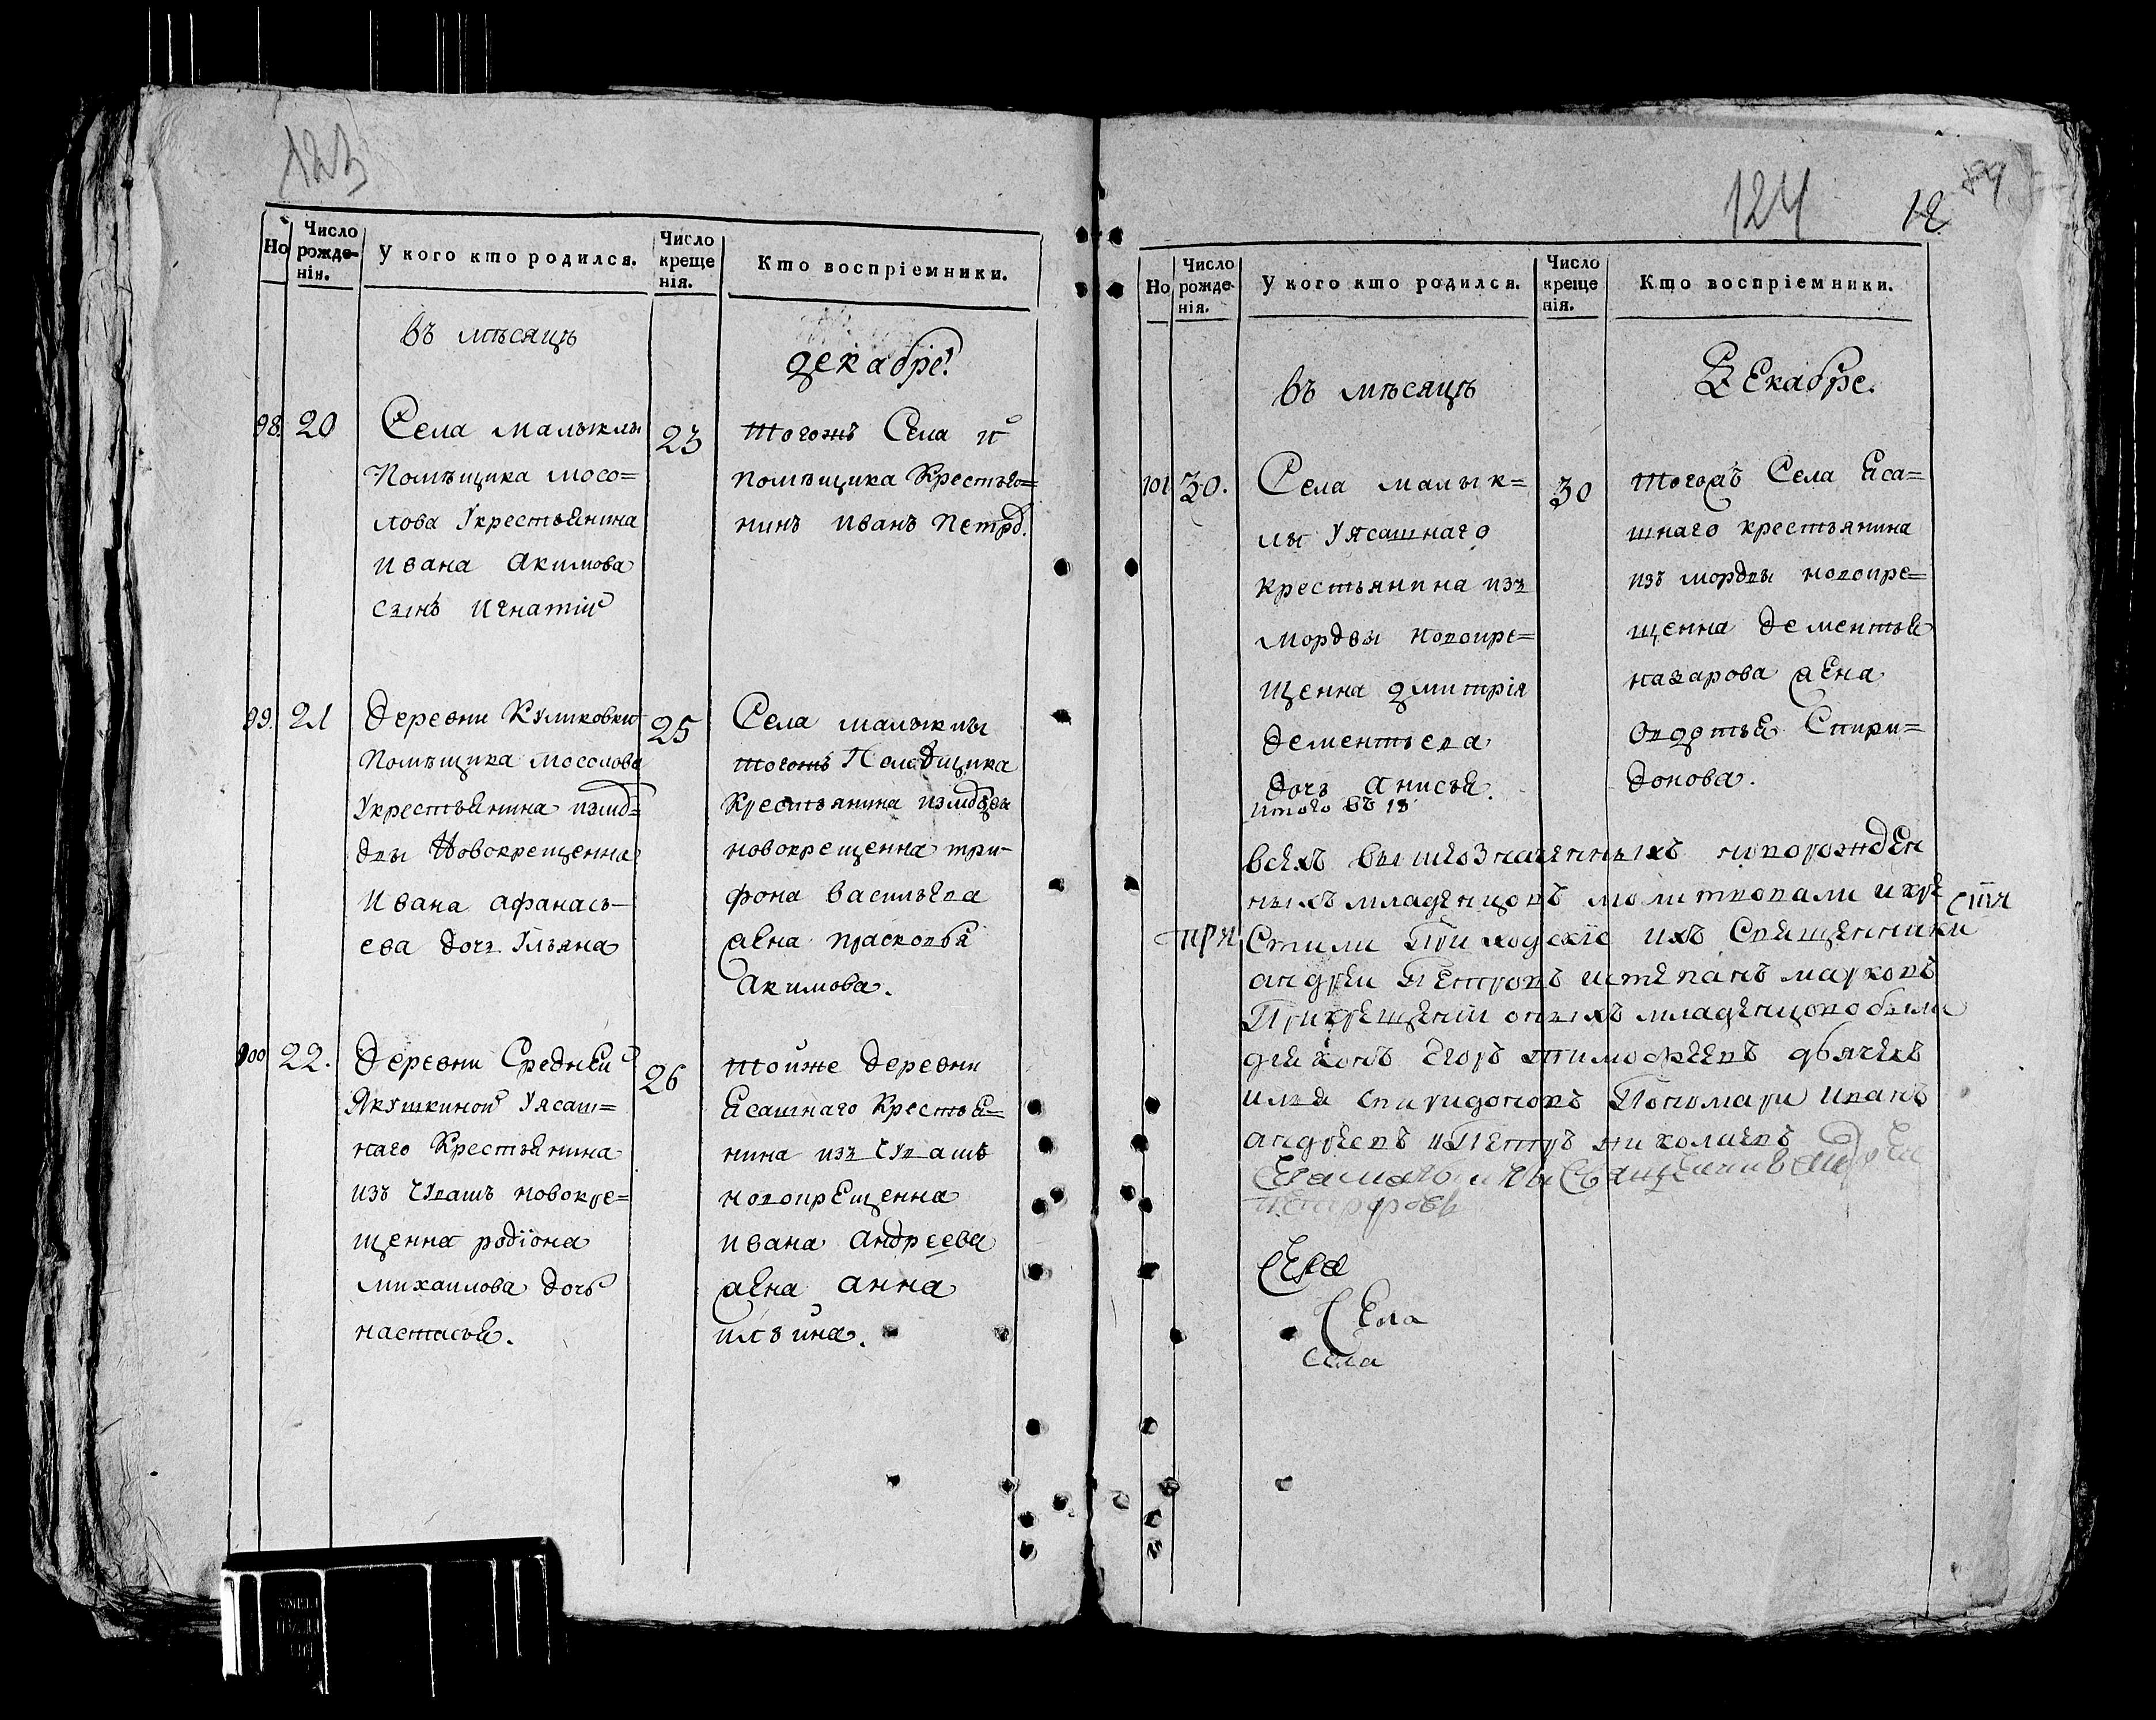 123
Но
Число рожде-нія.
У кого кто родился.
Число креще нія.
Кто воспріемники.
въ мѣсяцѣ
декабре!
98. 20
Села малыклы
Помѣщика мосо=
лова Укрестьянина
Ивана Акимова
сынъ Игнатіи
23
тогожъ Села и
помѣщика Крестья=
нинъ иванъ Петро.
99. 21
деревни Куликовки
Помѣщика мосолова
Укрестьянина измо=
двы Новокрещенна
Ивана афанась-
ева дочь Ульяна
25
Села малыклы
тогожъ Помѣщика
Крестьянина измодвы
новокрещенна три-
фона васильева
жена прасковья
Акимова.
100 22.
деревни Средней
Якушкиной Уясаш=
наго Крестьянина
изъ Чувашъ новокре=
щенна родіона
михаилова дочь
настасья.
26
тойже деревни
Ясашнаго Крестья=
нина изъ чувашъ
новокрещенна
ивана андреева
жена анна
ильина.
124
18
89
Но
Число рожде-нія.
У кого кто родился.
Число креще нія.
Кто воспріемники.
въ мѣсяцѣ
Декабре.
101 30.
Села малык=
лы Уясашнаго
крестьянина изъ
мордвы новокре=
щенна дмитрія
дементьева
дочь анисья.
30
тогожъ Села Яса=
шнаго крестьянина
изъ мордвы новокре=
щенна дементья
назарова жена
авдотья Спири=
донова.
итого въ 18
всехъ вышеозначенныхъ новорожден
ныхъ младенцовъ молитвовали и кре
стили Приходскіе ихъ Священники
андреи Петровъ истепанъ марковъ
Прикрещеніи оныхъ младенцовъ были
дьяконъ Егоръ тимофеевъ дьячекъ
илья спиридоновъ Пономари иванъ
андреевъ иПетръ николаевъ
Села
Села